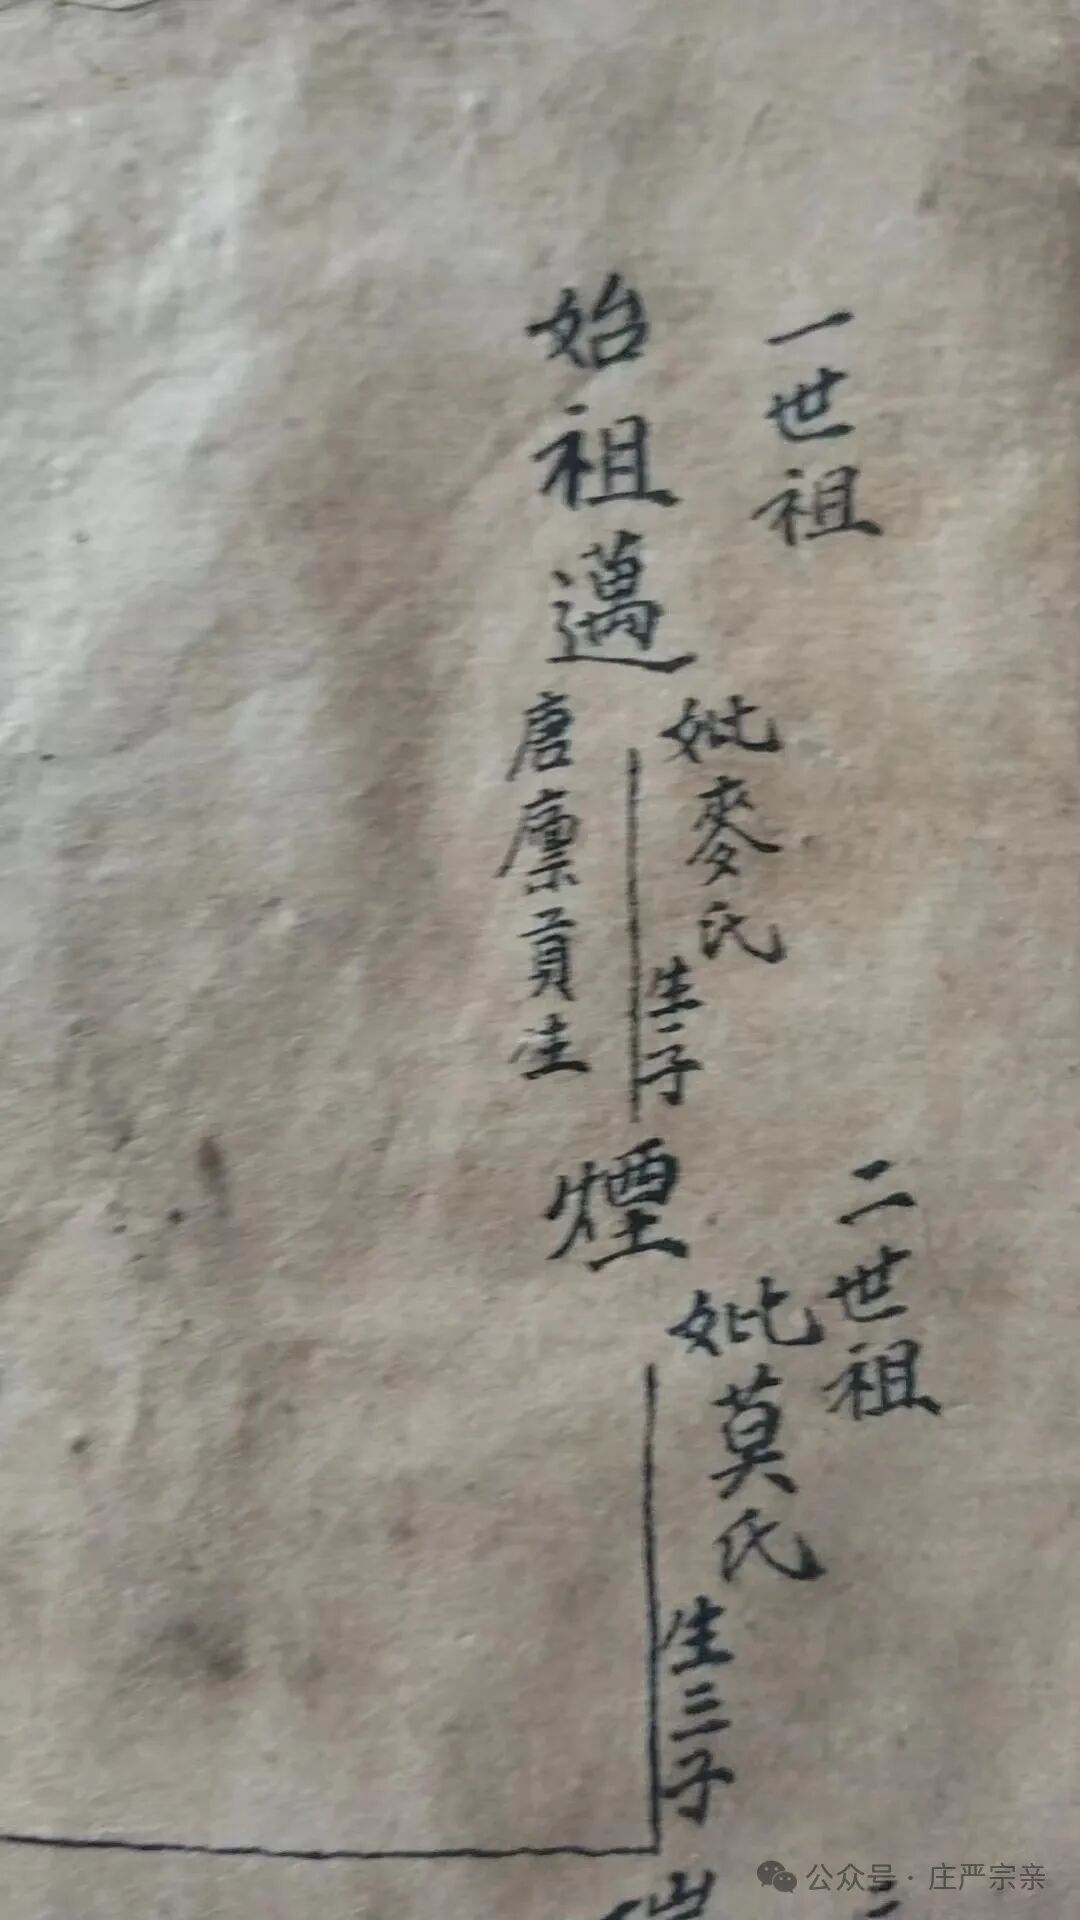 一世祖
始祖邁
妣麥氏
生一子
唐廩貢生
二世祖
煙
妣莫氏
生三子
公众号·庄严宗亲